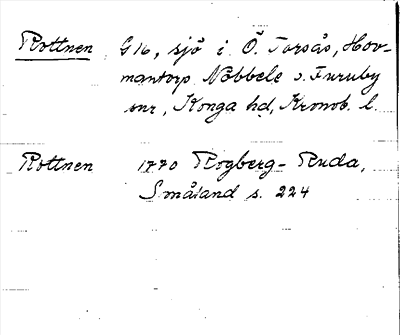 Rottnen G 16, sjö i Ö. Torsås, Hov-
mantorp Nöbbele o. Furuby
snr, Konga hd, Kronob. l.
Rottnen 1770 Rogberg-Ruda,
Småland s. 224